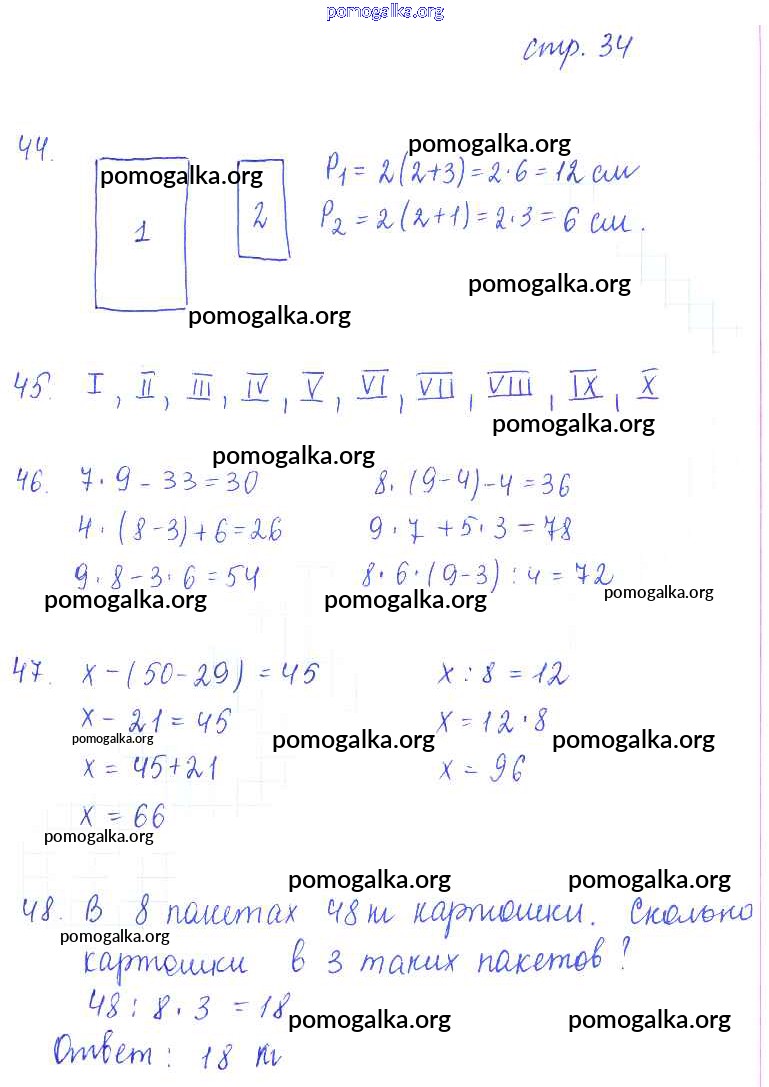 pomogalka.org
стр. 34
44.
pomogalka.org
pomogalka.org
1
2
P₁ = 2(2+3) = 2·6 = 12 см
P₂ = 2(2+1) = 2·3 = 6 см.
pomogalka.org
pomogalka.org
45. I, II, III, IV, V, VI, VII, VIII, IX, X
pomogalka.org
pomogalka.org
46. 7·9 - 33 = 30 8·(9-4)-4 = 36
4·(8-3)+6 = 26 9·7+5·3 = 78
9·8-3·6 = 54 8·6·(9-3):4 = 72
pomogalka.org pomogalka.org pomogalka.org
47. x-(50-29) = 45 x:8 = 12
x-21 = 45 x = 12·8
pomogalka.org pomogalka.org pomogalka.org
x = 45+21 x = 96
x = 66
pomogalka.org
pomogalka.org pomogalka.org
48. В 8 пакетах 48 кг картошки. Сколько
pomogalka.org
картошки в 3 таких пакетов?
48:8·3 = 18
pomogalka.org pomogalka.org
Ответ: 18 кг